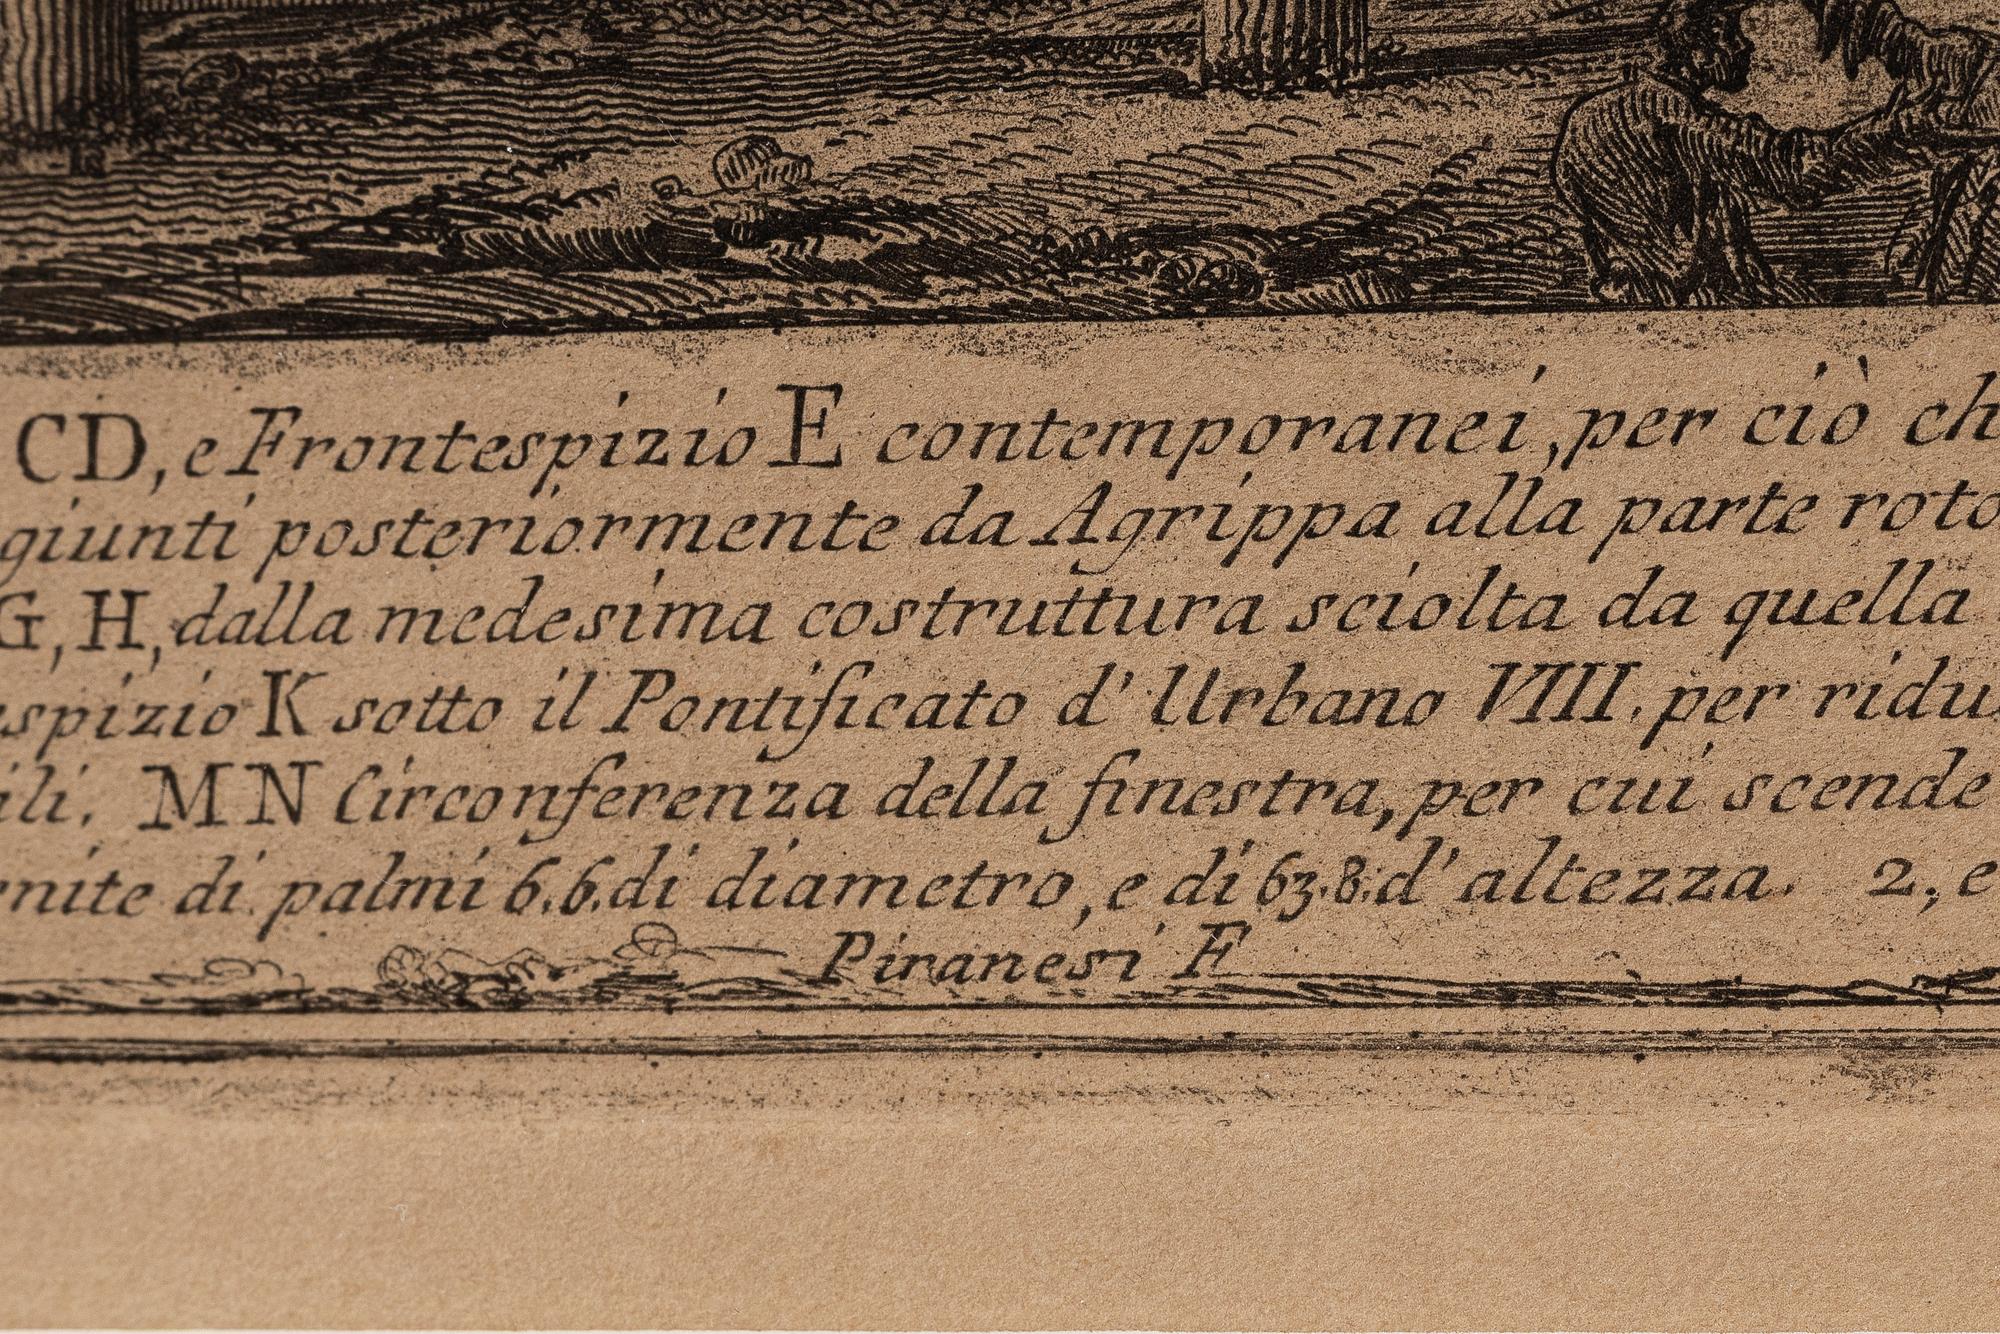 CD, e Frontespizio E contemporanei, per ciò ch
giunti posteriormente da Agrippa alla parte roto
G, H, dalla medesima costruttura sciolta da quella
spizio K sotto il Pontificato d' Urbano VIII. per ridu
ili. MN Circonferenza della finestra, per cui scende
nite di palmi 6.6. di diametro, e di 63.8. d' altezza. 2, e
Piranesi F